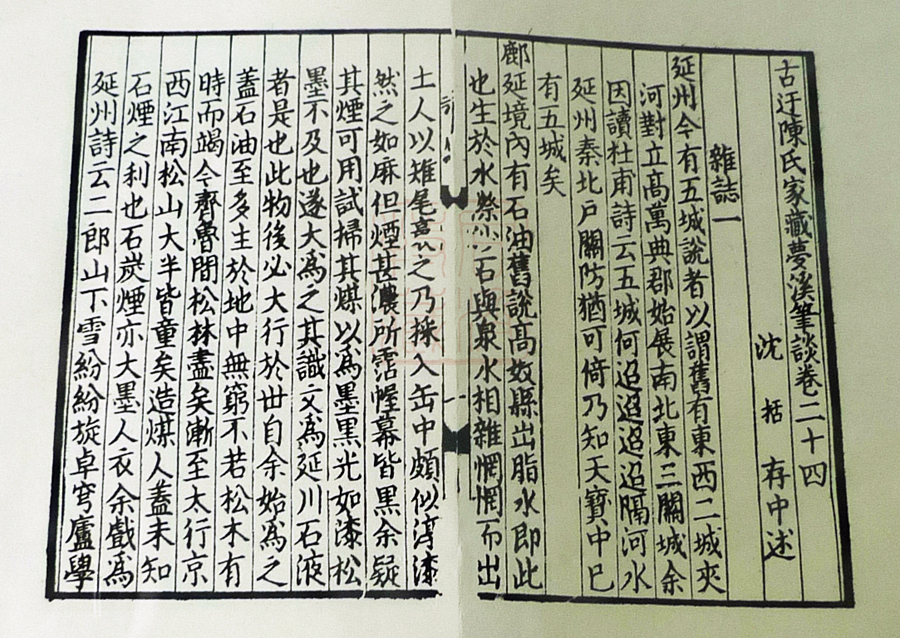 古迂陳氏家藏夢溪筆談卷二十四
沈括存中述
雜誌一
延州今有五城說者以謂舊有東西二城夾
河對立高萬典郡始展南北東三關城余
因讀杜甫詩云五城何迢迢迢迢隔河水
延州秦北戶關防猶可倚乃知天寶中已
有五城矣
鄜延境內有石油舊說高奴縣出脂水即此
也生於水際石與泉水相雜惘惘而出
土人以雉尾之乃採入缶中頗似淳漆
然之如麻但煙甚濃所霑幄幕皆黑余疑
其煙可用試掃其煤以為墨黑光如漆松
墨不及也遂大為之其識文為延川石液
者是也此物後必大行於世自余始為之
蓋石油至多生於地中無窮不若松木有
時而竭今齊魯間松林盡矣漸至太行京
西江南松山大半皆童矣造煤人蓋未知
石煙之利也石炭煙亦大墨人衣余戲為
延州詩云二郎山下雪紛紛旋卓穹廬學